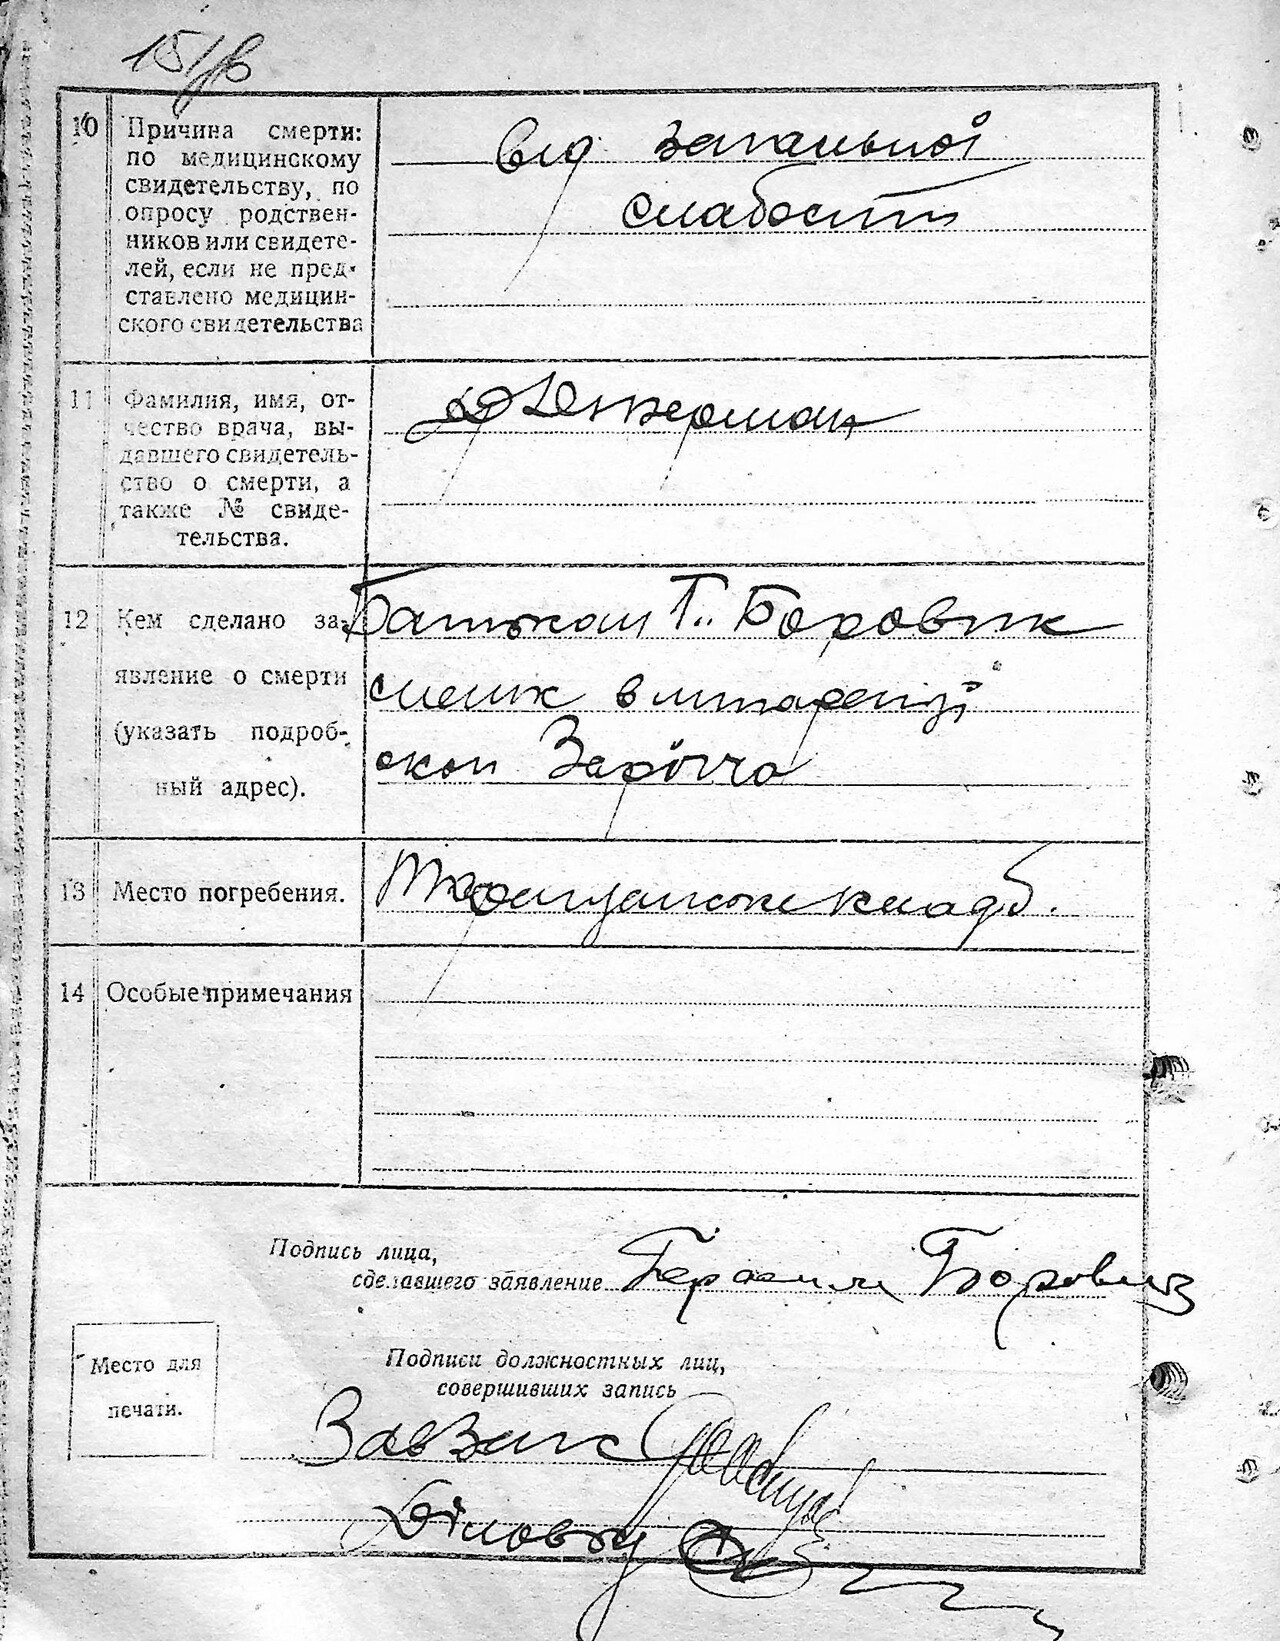 10 Причина смерти:
по медицинскому
свидетельству, по
опросу родствен-
ников или свидете-
лей, если не пред-
ставлено медицин-
ского свидетельства
Від загальної
слабости
11 Фамилия, имя, от-
чество врача, вы-
давшего свидетель-
ство о смерти, а
также № свиде-
тельства.
12 Кем сделано за-
явление о смерти
(указать подроб-
ный адрес).
Батьком Г. Боровик
мешк в
Заріччя
13 Место погребения.
кладб.
14 Особые примечания
Подпись лица,
сделавшего заявление Герасим Боровик
Место для
печати.
Подписи должностных лиц,
совершивших запись
Завзагс
Діловод